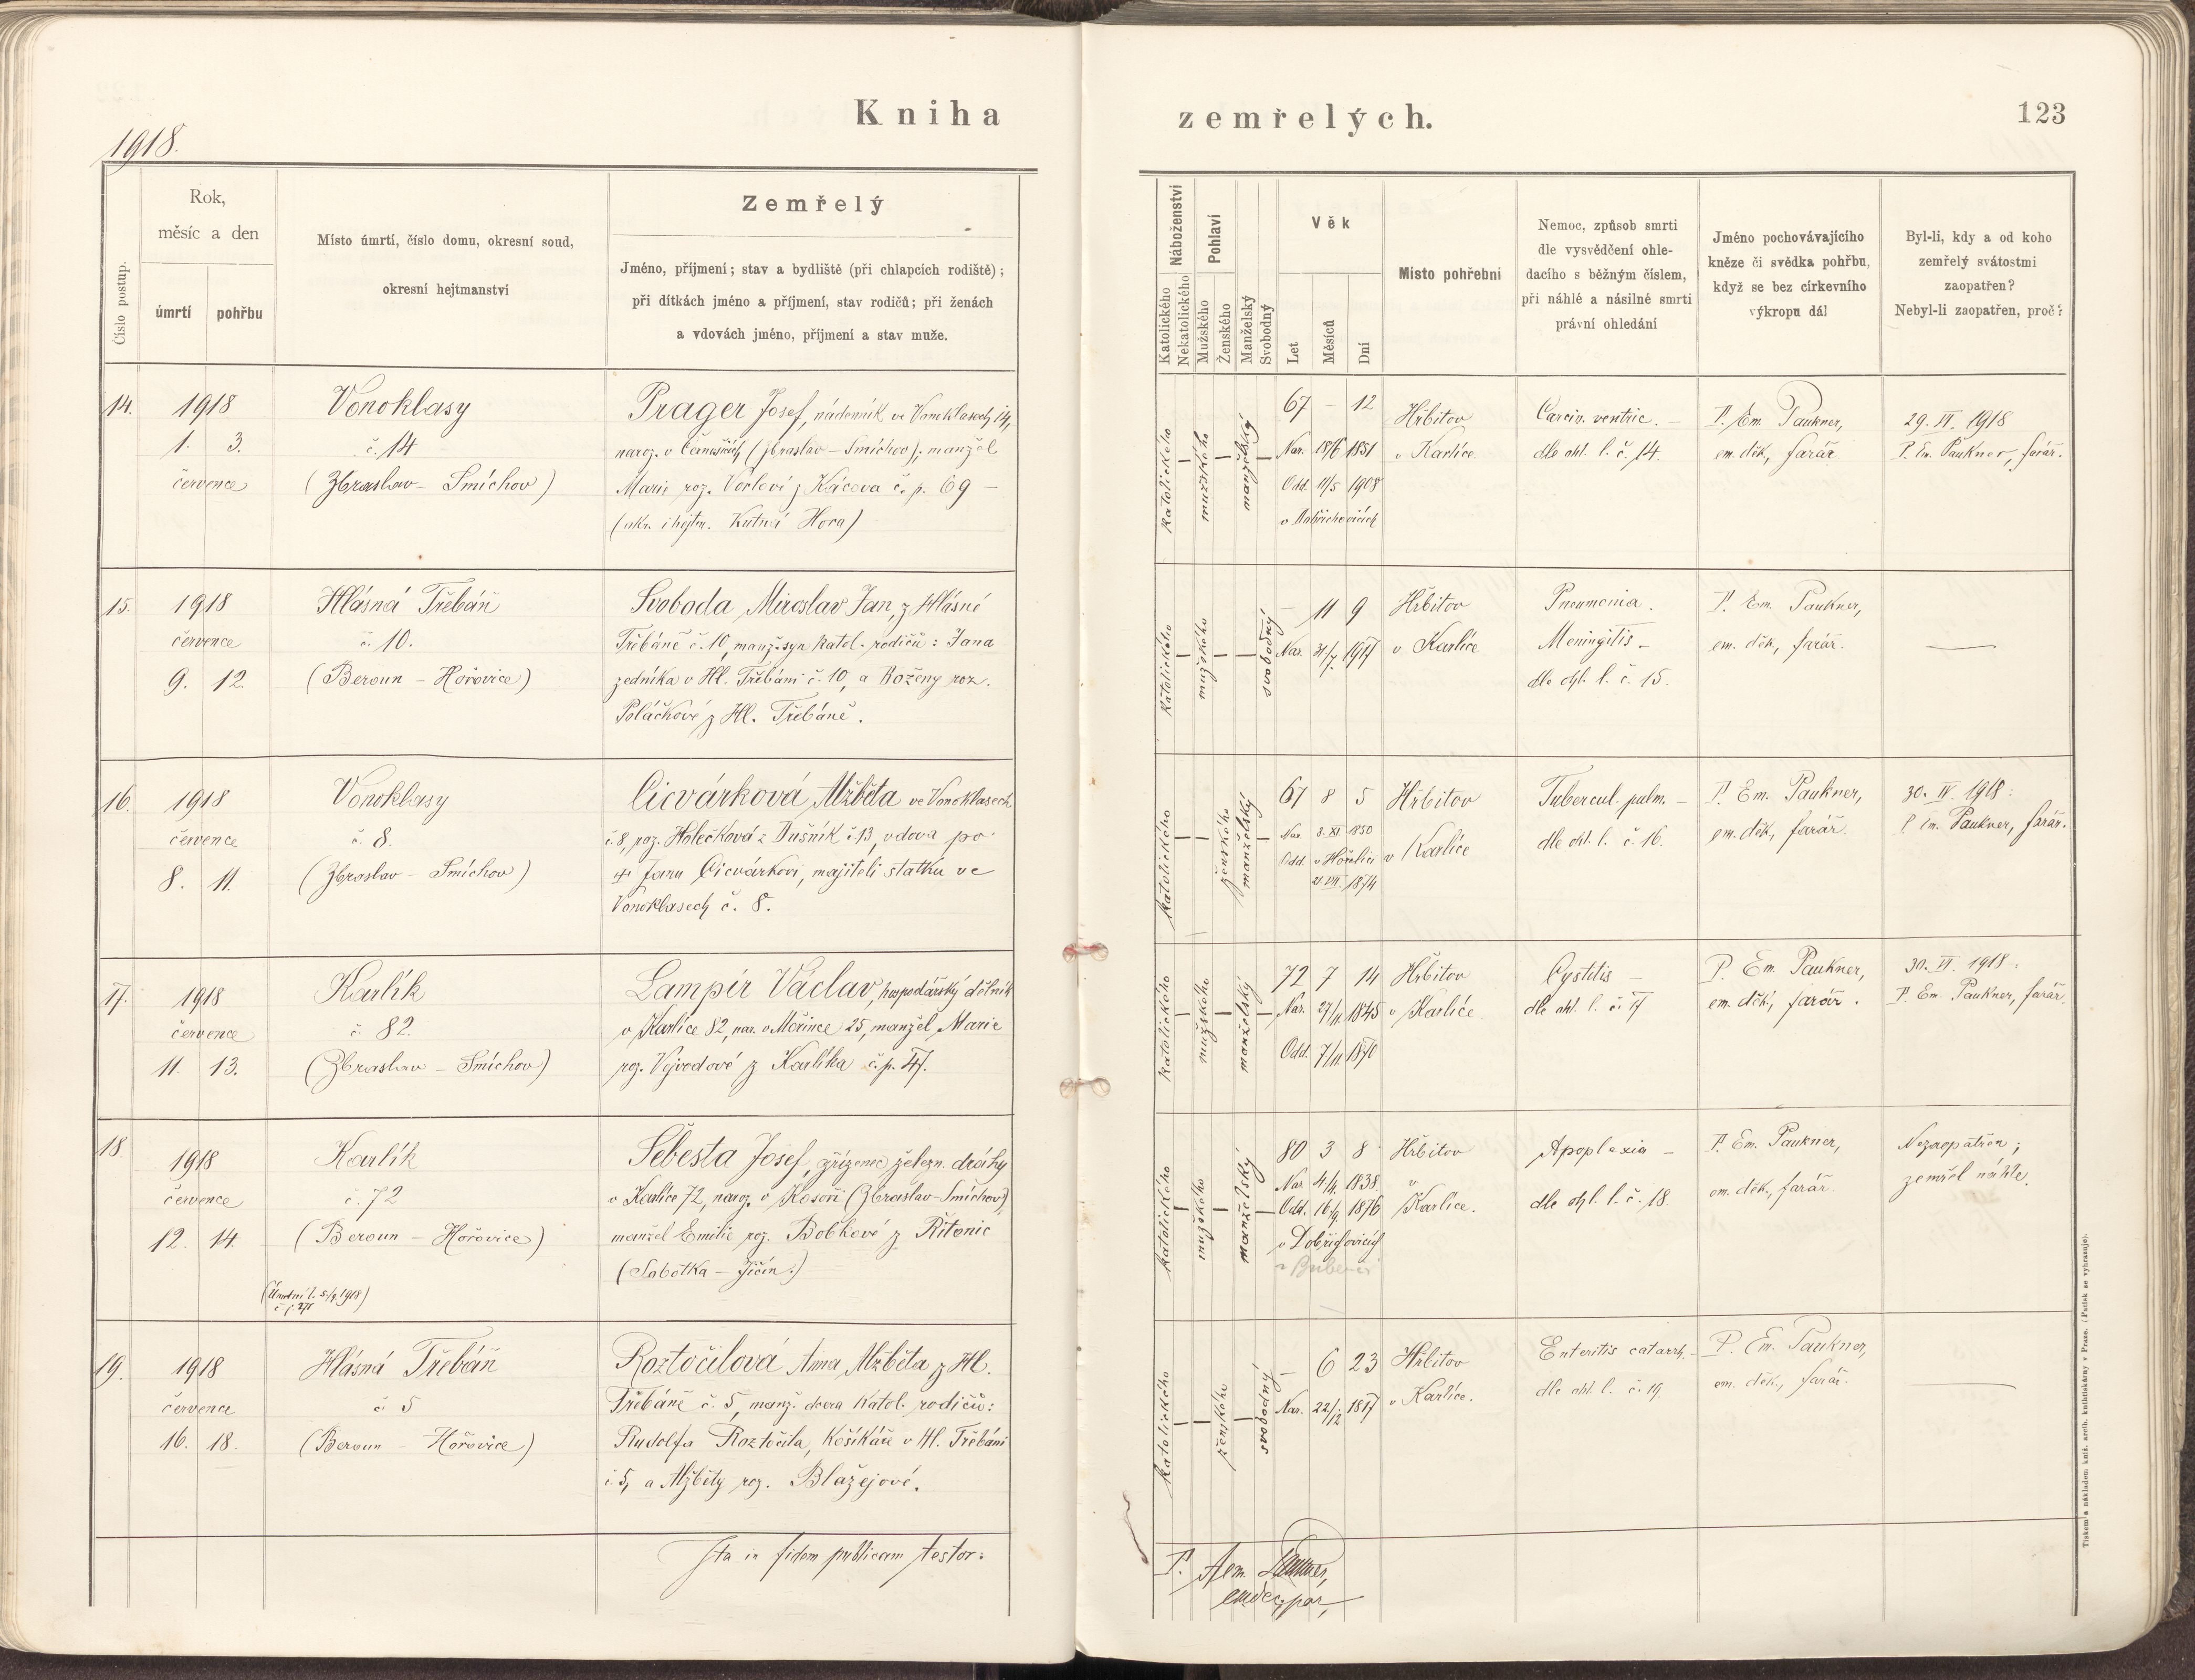 Kniha
zemřelých.
123
1918.
Číslo postup.
Rok,
měsíc a den
úmrtí
pohřbu
Místo úmrtí, číslo domu, okresní soud,
okresní hejtmanství
Zemřelý
Jméno, příjmení; stav a bydliště (při chlapcích rodiště);
při dítkách jméno a příjmení, stav rodičů; při ženách
a vdovách jméno, příjmení a stav muže.
Náboženství
Katolického
Nekatolického
Pohlaví
Mužského
Ženského
Manželský
Svobodný
Věk
Let
Měsíců
Dní
Místo pohřební
Nemoc, způsob smrti
dle vysvědčení ohle-
dacího s běžným číslem,
při náhlé a násilné smrti
právní ohledání
Jméno pochovávajícího
kněze či svědka pohřbu,
když se bez církevního
výkropu dál
Byl-li, kdy a od koho
zemřelý svátostmi
zaopatřen?
Nebyl-li zaopatřen, proč?
14.
1918
1. 3.
července
Vonoklasy
č. 14
(Zbraslav – Smíchov)
Prager Josef, nádeník ve Vonoklasech 14,
naroz. v Černošicích (Zbraslav – Smíchov); manžel
Marie roz. z Kácova č. p. 69 –
(okr. i hejtm. Kutná Hora)
katolického
mužského
manželský
67 – 12
Nar. 18/6 1851
Odd. 11/5 1908
v Dobřichovicích
Hřbitov
v Karlíce
Carcin. ventric. –
dle ohl. l. č. 14.
P. Em. Paukner,
em. děk., farář.
29. VI. 1918
P. Em. Paukner, farář.
15.
1918
července
9. 12.
Hlásná Třebáň
č. 10.
(Beroun – Hořovice)
Svoboda Miroslav Jan, z Hlásné
Třebáně č. 10, manž. syn katol. rodičů: Jana
zedníka v Hl. Třebáni č. 10, a Boženy roz.
Poláčkové z Hl. Třebáně.
katolického
mužského
svobodný
– 11 9
Nar. 31/7. 1917
Hřbitov
v Karlíce
Pneumonia.
Meningitis –
dle ohl. l. č. 15.
P. Em. Paukner,
em. děk., farář.
—
16.
1918
července
8. 11.
Vonoklasy
č. 8.
(Zbraslav – Smíchov)
Cicvárková Alžběta ve Vonoklasech
č. 8, roz. Holečková z Dušník č. 13, vdova po
† Janu Cicvárkovi, majiteli statku ve
Vonoklasech č. 8.
katolického
ženského
manželský
67 8 5
Nar. 3. XI. 1850
Odd. v Hořelici
21. VII. 1874
Hřbitov
v Karlíce
Tubercul. pulm. –
dle ohl. l. č. 16.
P. Em. Paukner,
em. děk., farář.
30. VI. 1918:
P. Em. Paukner, farář.
17.
1918
července
11. 13.
Karlík
č. 82.
(Zbraslav – Smíchov)
Lampír Václav, hospodářský dělník
v Karlíce 82, nar. v Mořince 25, manžel Marie
roz. Vojvodové z Karlíka č. p. 47.
katolického
mužského
manželský
72 7 14
Nar. 27/11. 1845
Odd. 7/11. 1870
Hřbitov
v Karlíce
Cystitis –
dle ohl. l. č. 17
P. Em. Paukner,
em. děk., farář.
30. VI. 1918:
P. Em. Paukner, farář.
18
1918
července
12. 14.
Karlík
č. 72
(Beroun – Hořovice)
(Úmrtní l. 5/9. 1918)
Šebesta Josef, zřízenec želazn. dráhy
v Karlíce 72, naroz. v Kosoři (Zbraslav – Smíchov)
manžel Emilie roz. Bobkové z Řitonic
(Sobotka – Jičín.)
katolického
mužského
manželský
80 3 8
Nar. 4/4. 1838
Odd. 16/9. 1876
v Dobřichovicích
Hřbitov
v
Karlíce.
Apoplexia –
dle ohl. l. č. 18.
P. Em. Paukner,
em. děk., farář.
Nezaopatřen;
zemřel náhle.
19.
1918
července
16. 18.
Hlásná Třebáň
č. 5
(Beroun – Hořovice)
Roztočilová Anna Alžběta z Hl.
Třebáně č. 5, manž. dcera katol. rodičů:
Rudolfa Roztočila, košíkáře v Hl. Třebáni
č. 5, a Alžběty roz. Blažejové.
katolického
ženského
svobodný
– 6 23
Nar. 22/12 1817
Hřbitov
v Karlíce.
Enteritis catarrh. –
dle ohl. l. č. 19.
P. Em. Paukner,
em. děk., farář.
—
Ita in fidem publicam testor:
P. Aem. Paukner,
Tiskem a nákladem kníž. arcib. knihtiskárny v Praze. (Patisk se vyhrazuje).